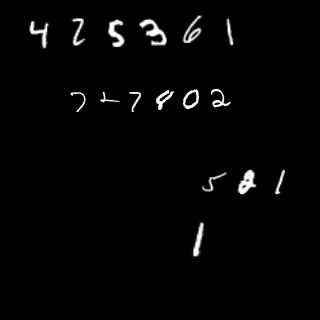 425361
7+7802
521
1